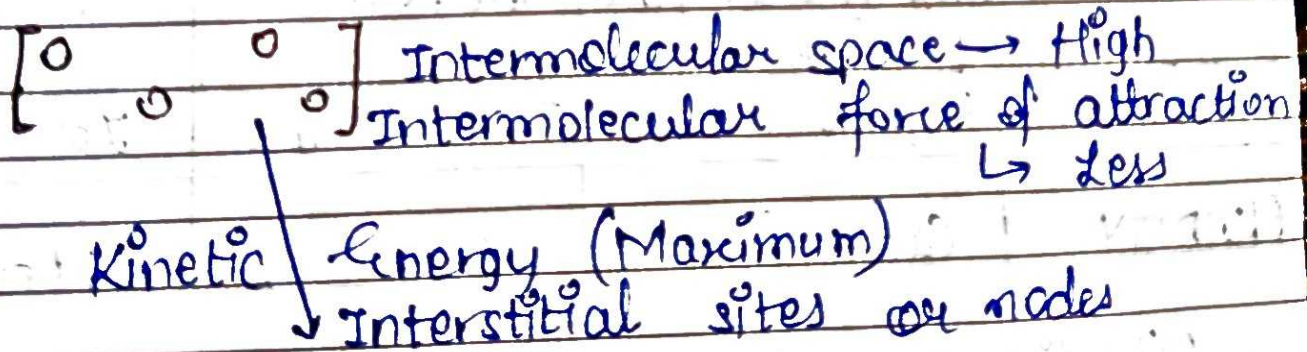 Intermolecular space → High
Intermolecular force of attraction
↳ Less
Kinetic Energy (Maximum)
Interstitial sites or nodes